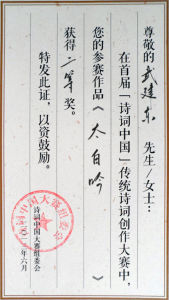 尊敬的 武建东 先生/女士：
在首届「诗词中国」传统诗词创作大赛中，
您的参赛作品《太白吟》
获得二等奖。
特发此证，以资鼓励。
诗词中国大赛组委会
二〇一三年六月